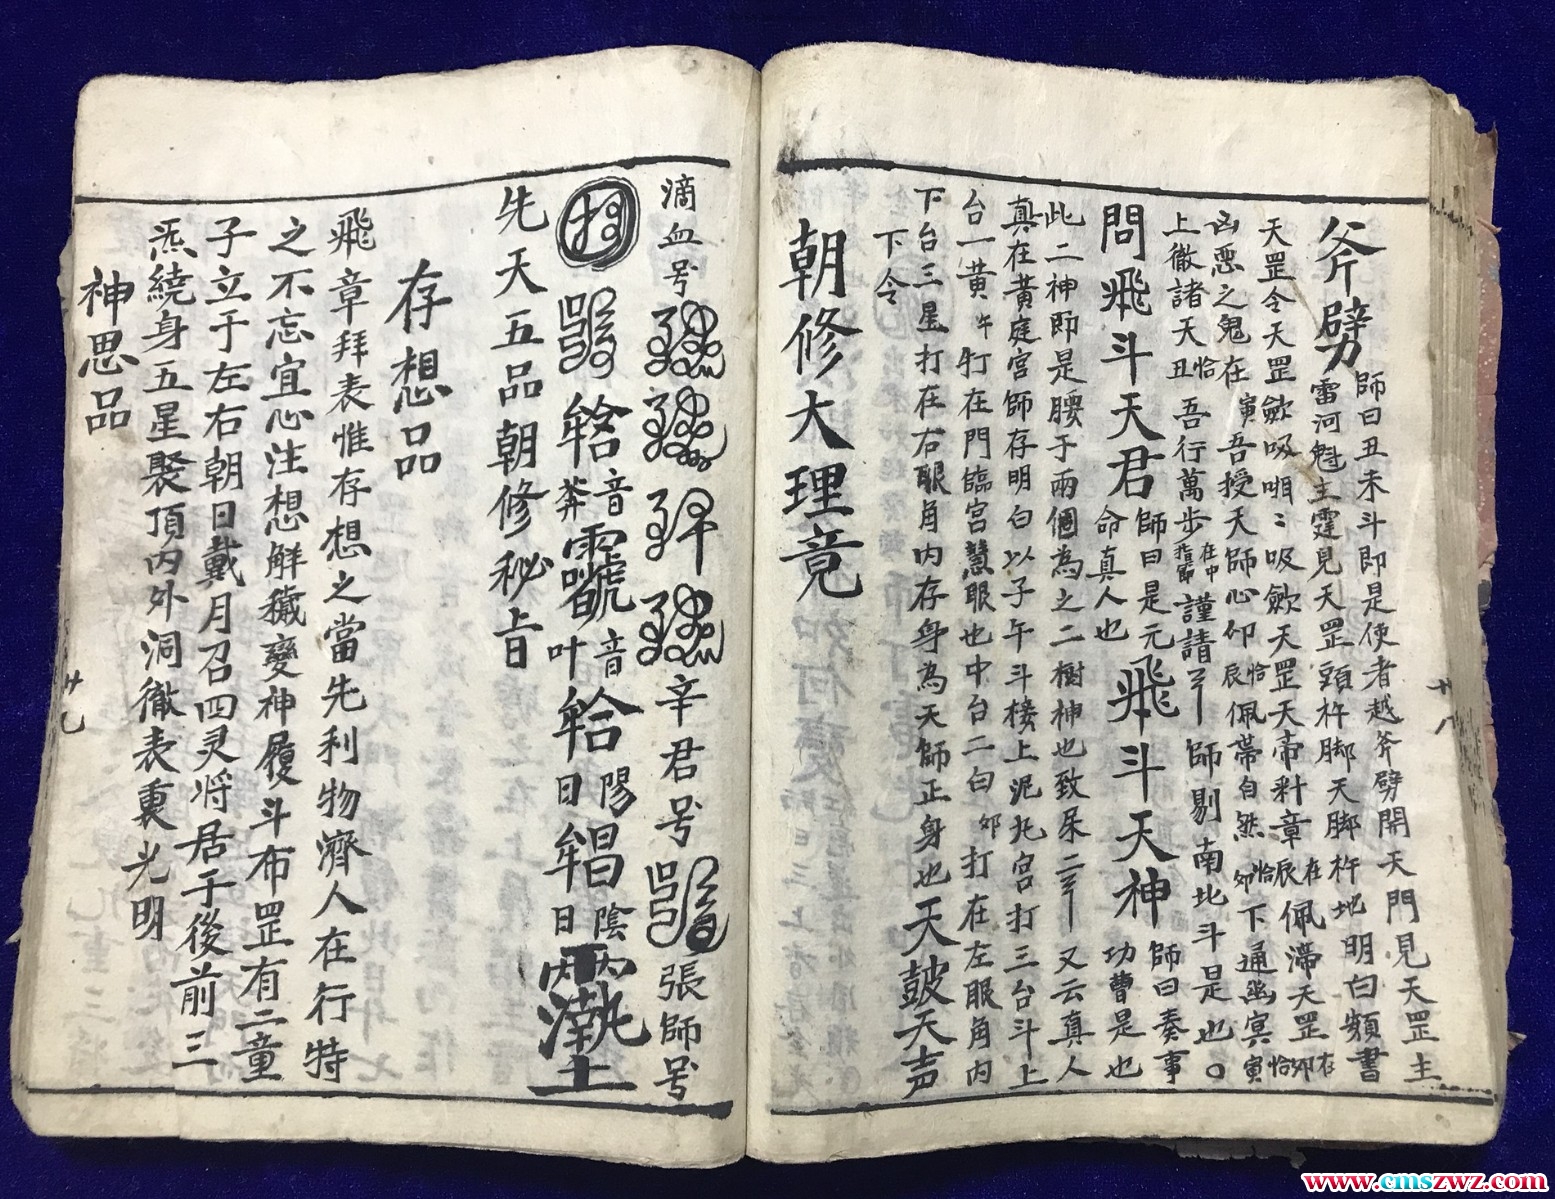 斧劈 師曰丑未斗即是使者越斧劈開天門見天罡主
雷河魁主霆見天罡頭杵脚天脚杵地明白類書
天罡令天罡歛吸啒〻吸歛天罡天帝料章在辰佩滯天罡在卯
凶惡之鬼在寅吾授天師心印恰辰佩帶自然恰卯下通幽冥恰寅
上徹諸天恰丑吾行萬步在中指節謹請 師剔南北斗是也〇
問飛斗天君 師曰是元命真人也 飛斗天神 師曰奏事功曹是也
此二神即是腰于兩個為之二樹神也致呆二 又云真人
真在黃庭宮師存明白以子午斗楼上泥丸宮打三台斗上
台一黄午打在門臨宮慧眼也中台二白卯打在左眼角內
下台三星打在右眼角内存身為天師正身也 天鼓天声
下令
朝修大理竟
十八
滴血号 辛君号 張師号
音 音 陽 陰
叶 日 日
先天五品朝修秘旨
存想品
飛章拜表惟存想之當先利物濟人在行特
之不忘宜心注想解穢變神履斗布罡有二童
子立于左右朝日戴月召四灵将居于後前三
炁繞身五星聚頂内外洞徹表裏光明
神思品
www.cmszwz.com